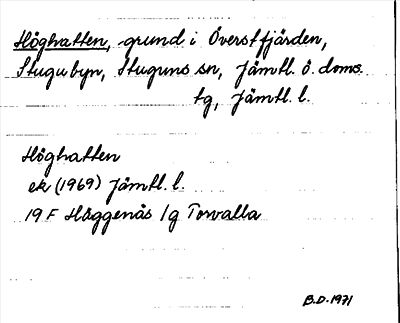 Höghatten, grund i Överstfjärden,
Stugubyn, Stuguns sn, Jämtl. ö. doms.
tg, Jämtl. l.
Höghatten
ek (1969) Jämtl. l.
19 F Häggenås / g Torvalla
B.D. 1971